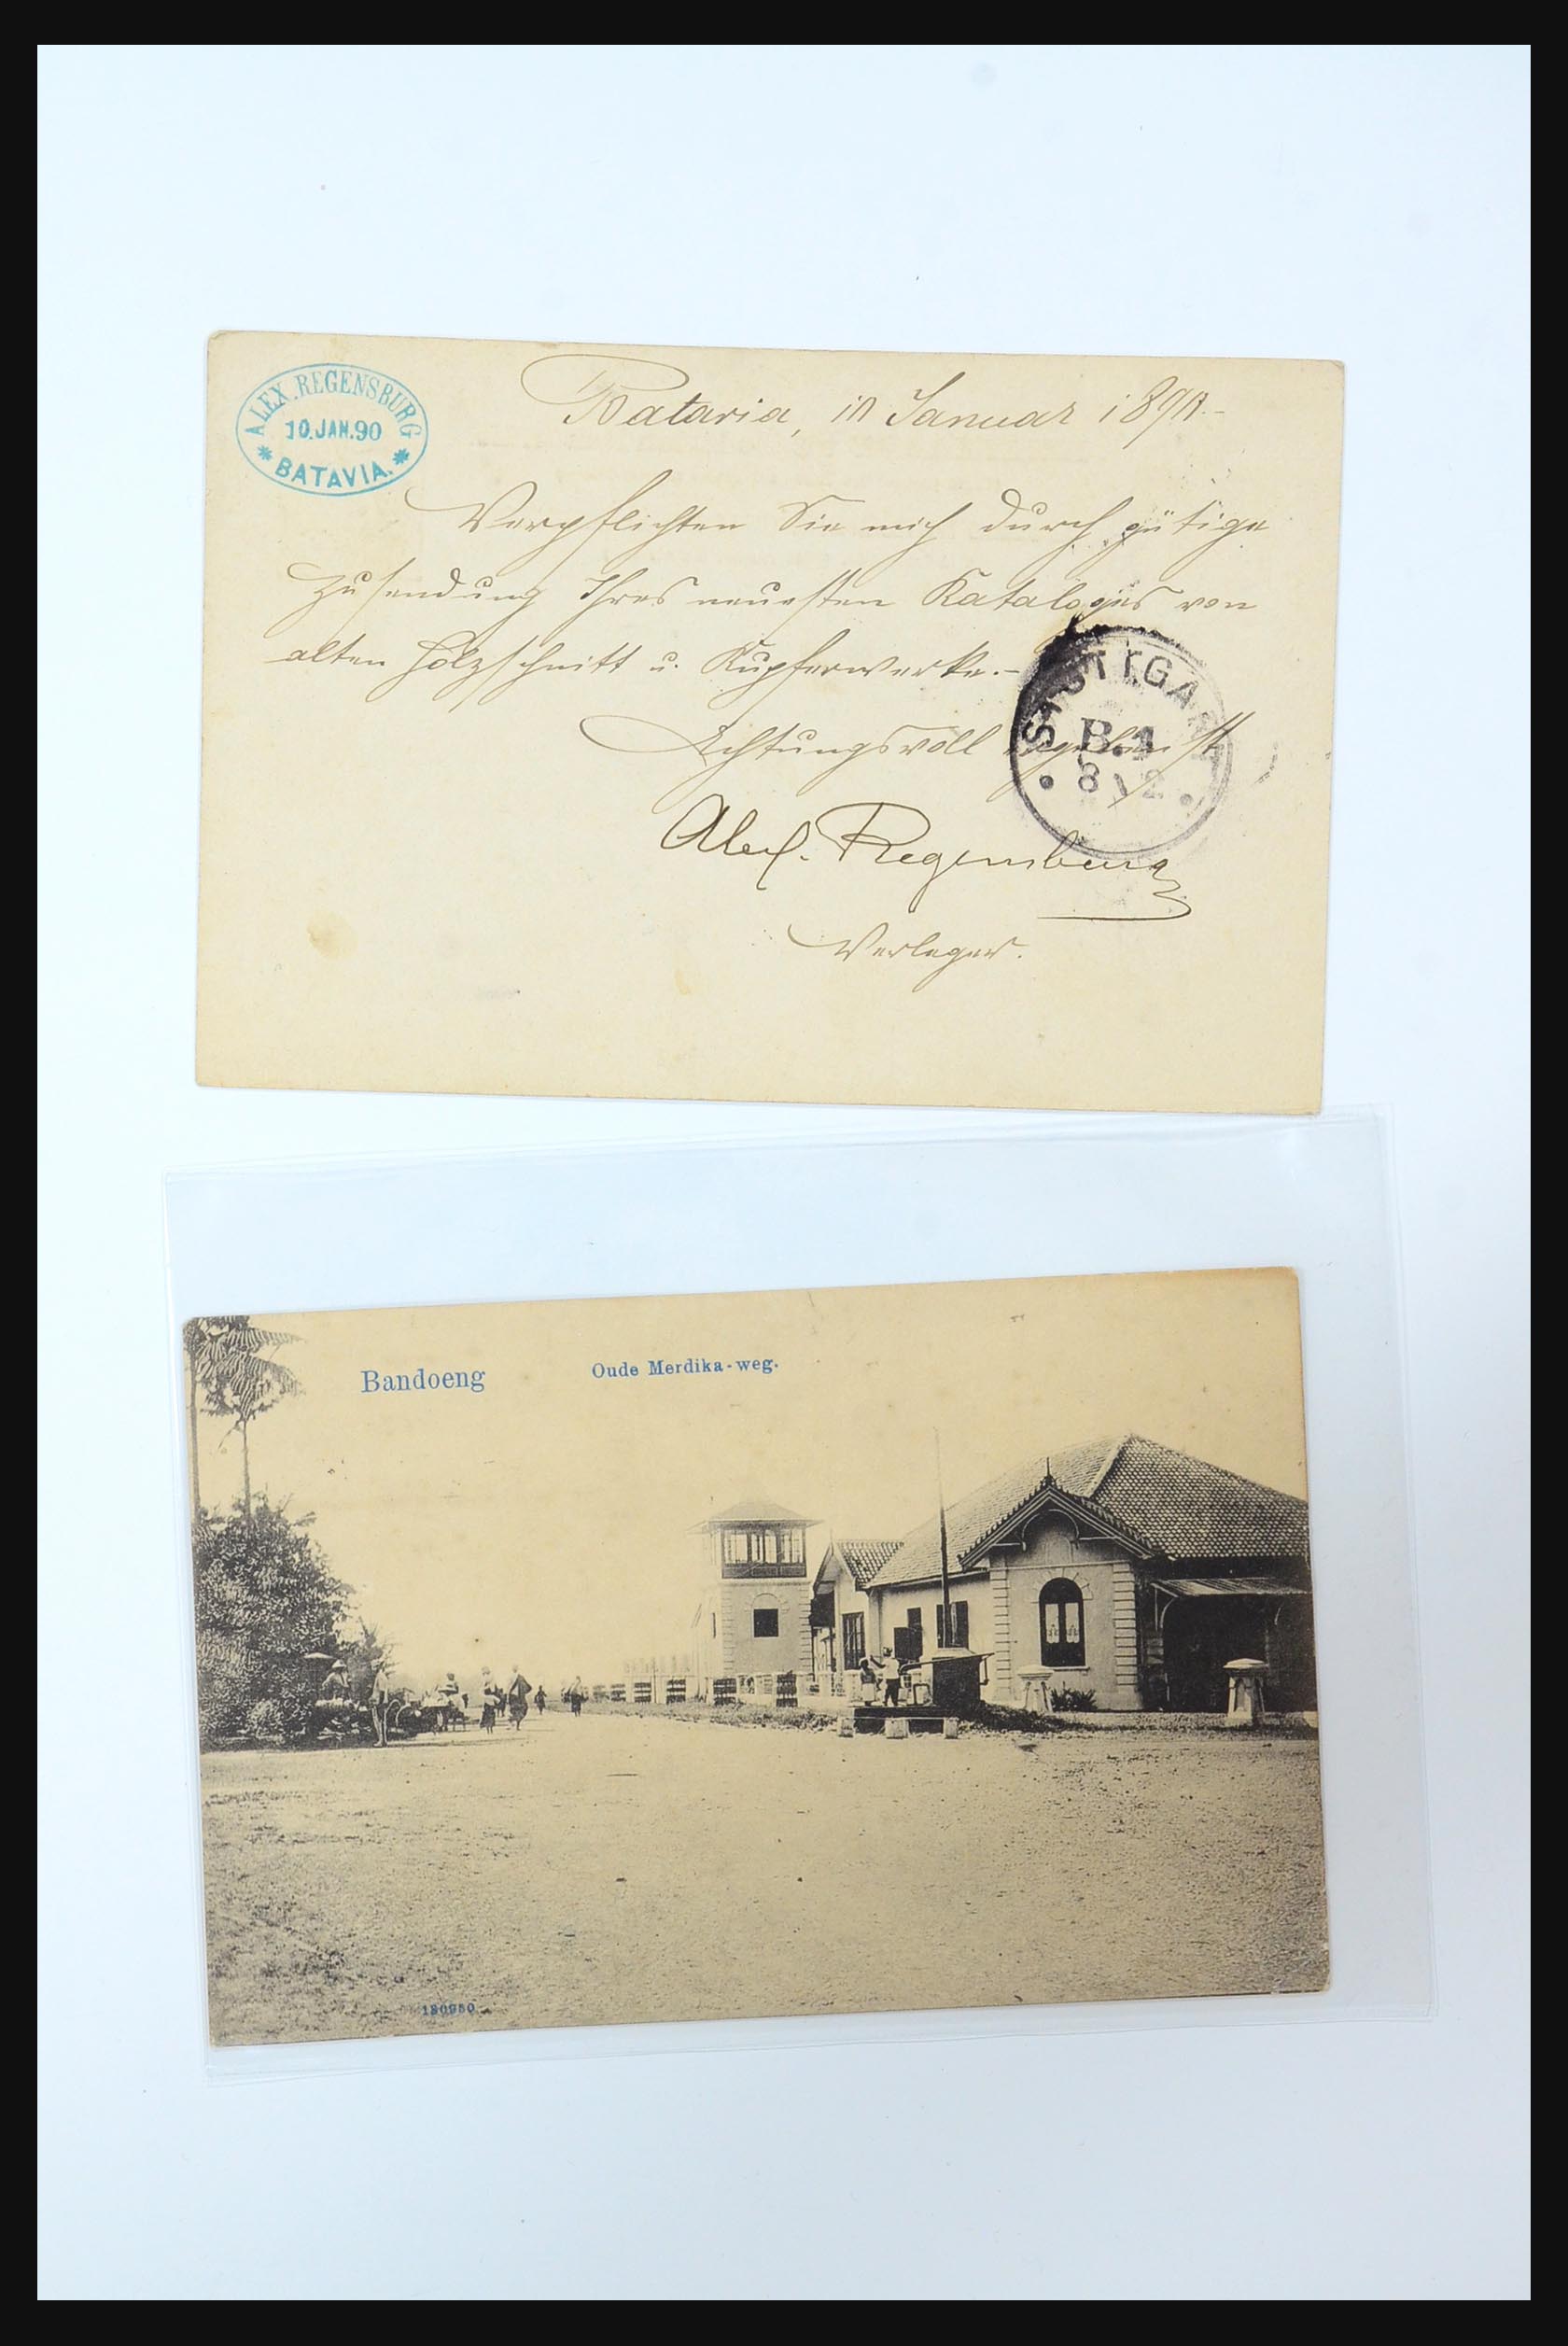 ALEX. REGENSBURG
10.JAN.90
BATAVIA.
Batavia, 10 Januar 1890.-
Verpflichten Sie mich durch gütige
Zusendung Ihres neuesten Kataloges von
alten Holzschnitt u. Kupferwerke.-
Achtungsvoll ergebenst
Alex. Regensburg
Verleger.
STUTTGART
B.1
8 2
Bandoeng
Oude Merdika-weg.
180950